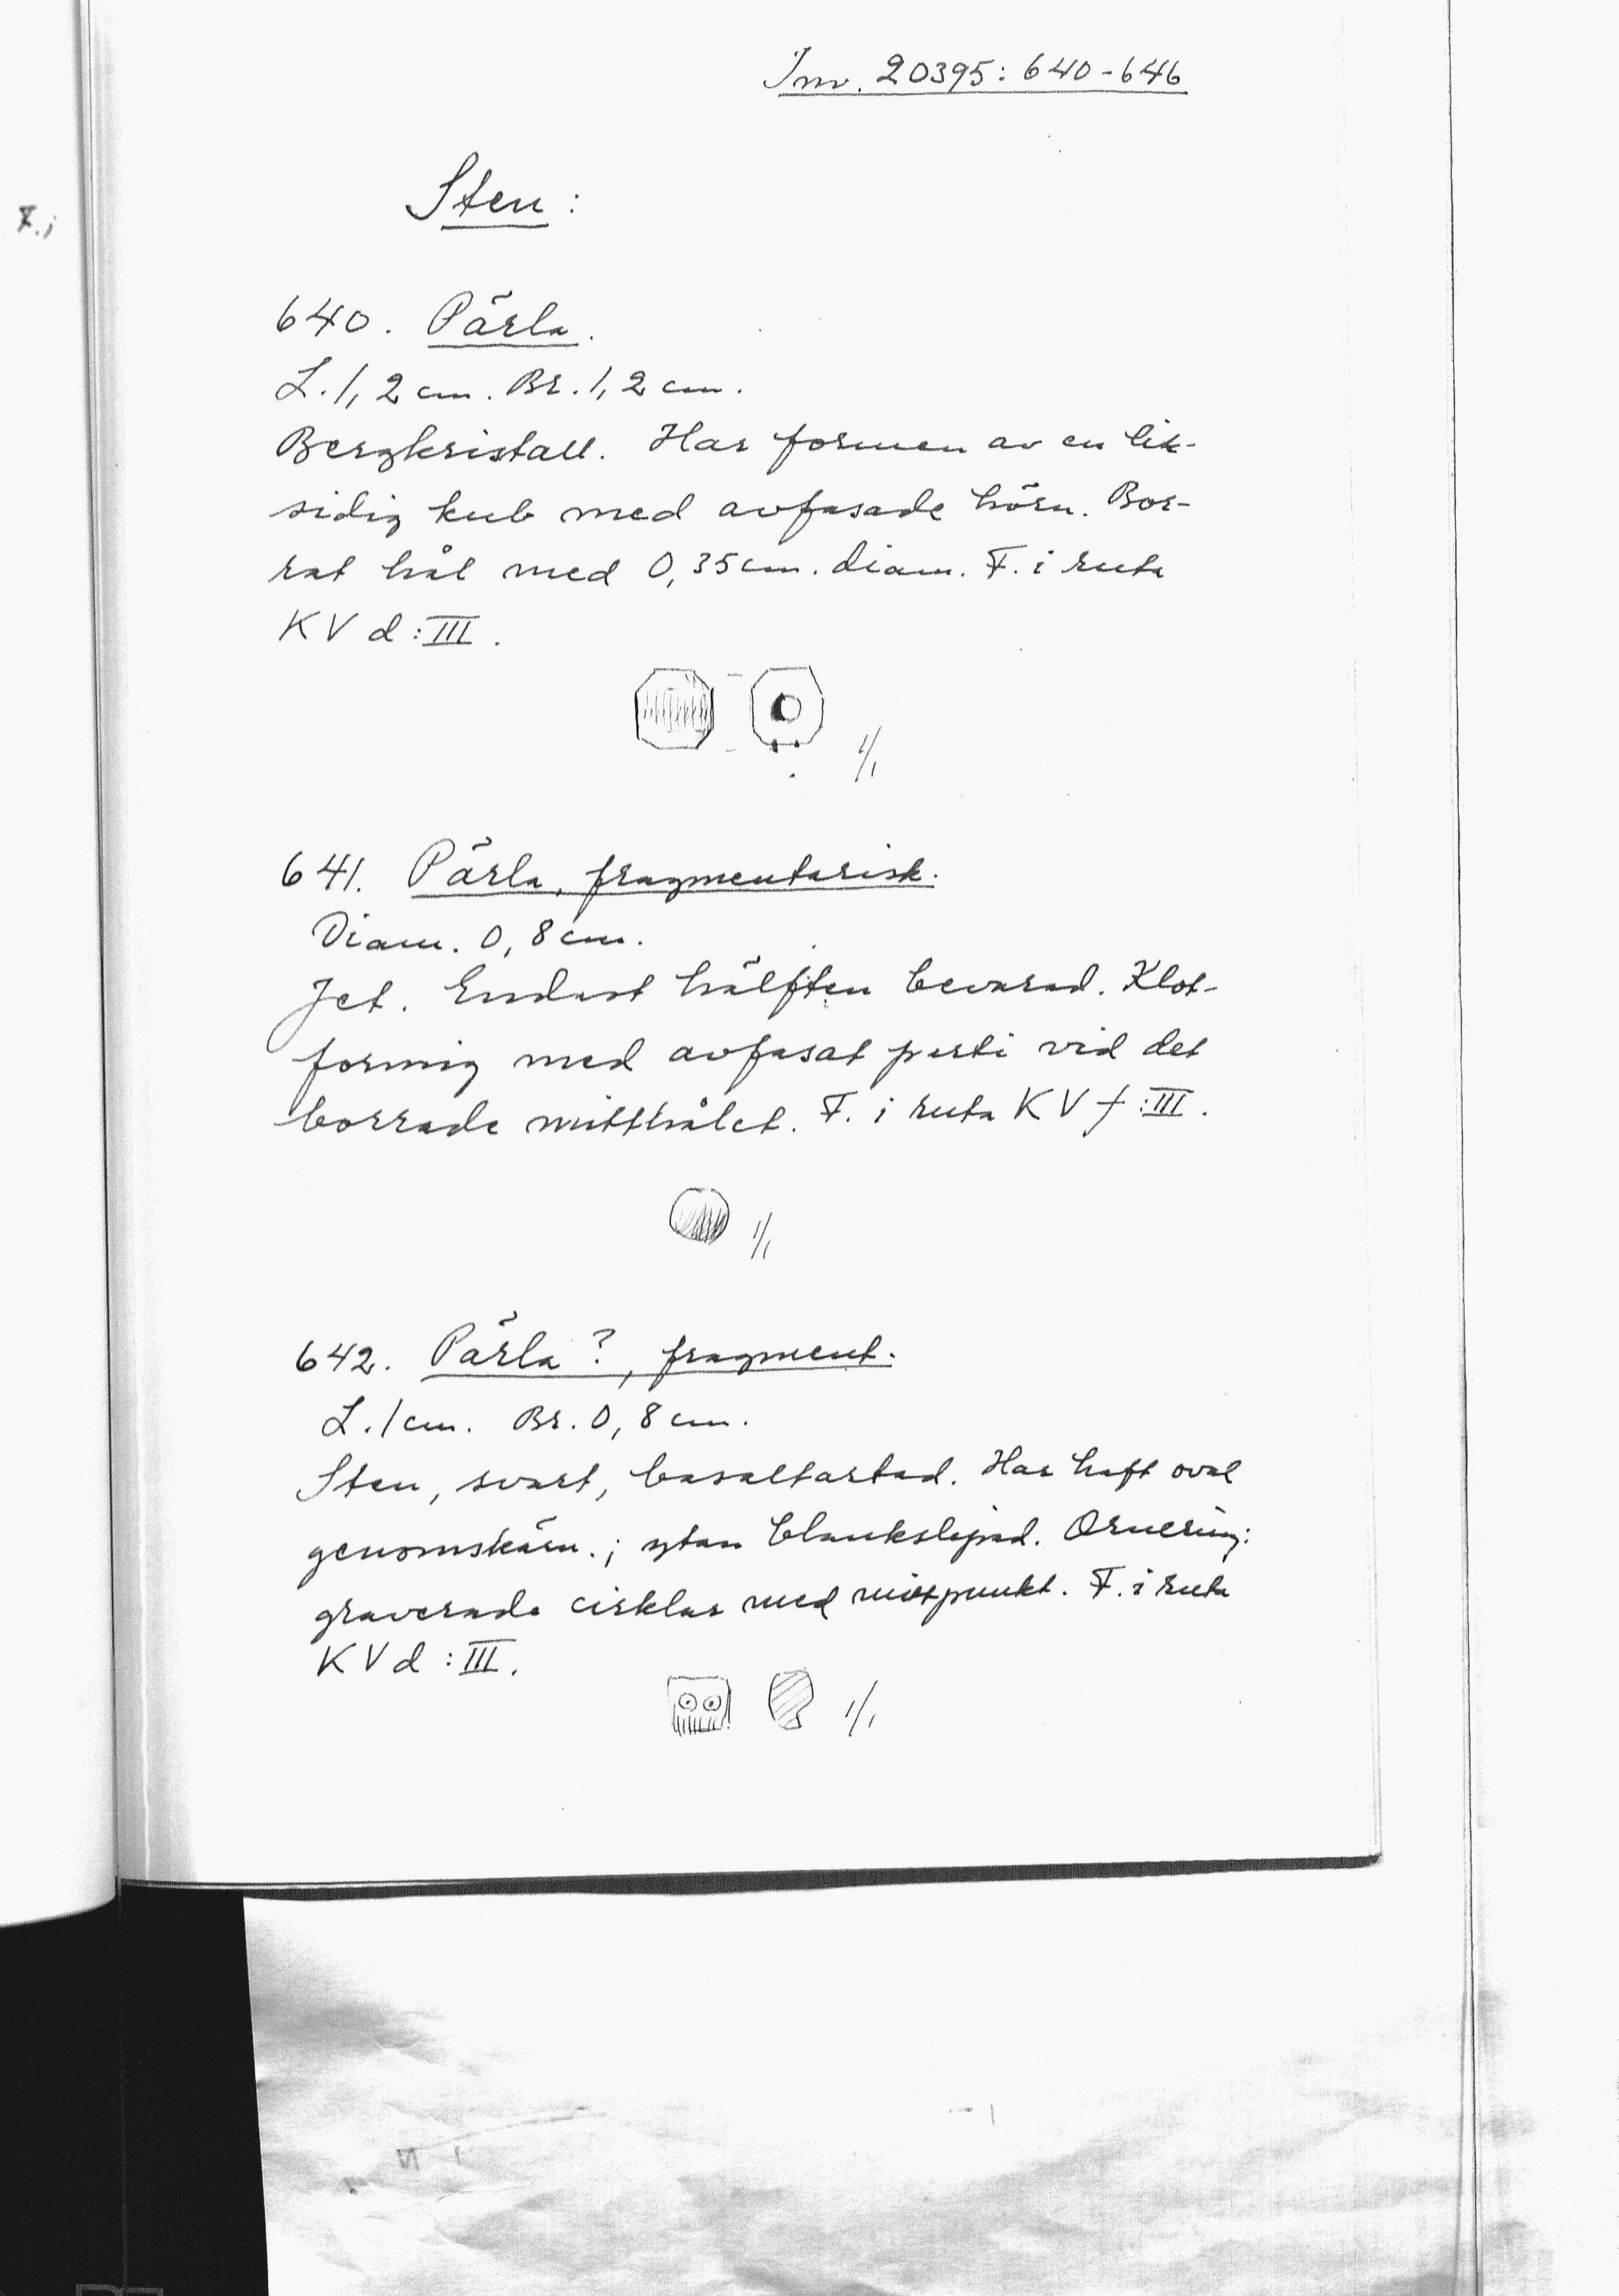 Inv. 20395: 640-646
Sten:
F. i
640. Pärla.
L. 1,2 cm. Br. 1,2 cm.
Bergkristall. Har formen av en lik-
sidig kub med avfasade hörn. Bor-
rat hål med 0,35 cm. diam. F. i ruta
KV d:III.
1/1
641. Pärla, fragmentarisk.
Diam. 0,8 cm.
Jet. Endast hälften bevarad. Klot-
formig med avfasat parti vid det
borrade mitthålet. F. i ruta KV f:III.
1/1
642. Pärla?, fragment.
L. 1 cm. Br. 0,8 cm.
Sten, svart, basaltartad. Har haft oval
genomskärn.; ytan blankslipad. Ornering:
graverade cirklar med mittpunkt. F. i ruta
KV d:III.
1/1